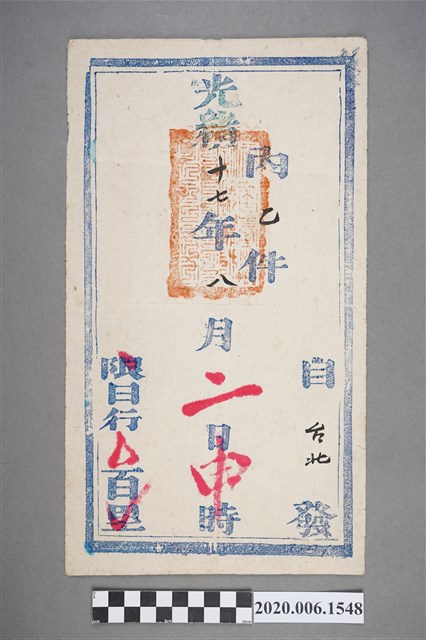 自台北發
內乙件
光緒十七年八月二日申時
限日行百里
2020.006.1548